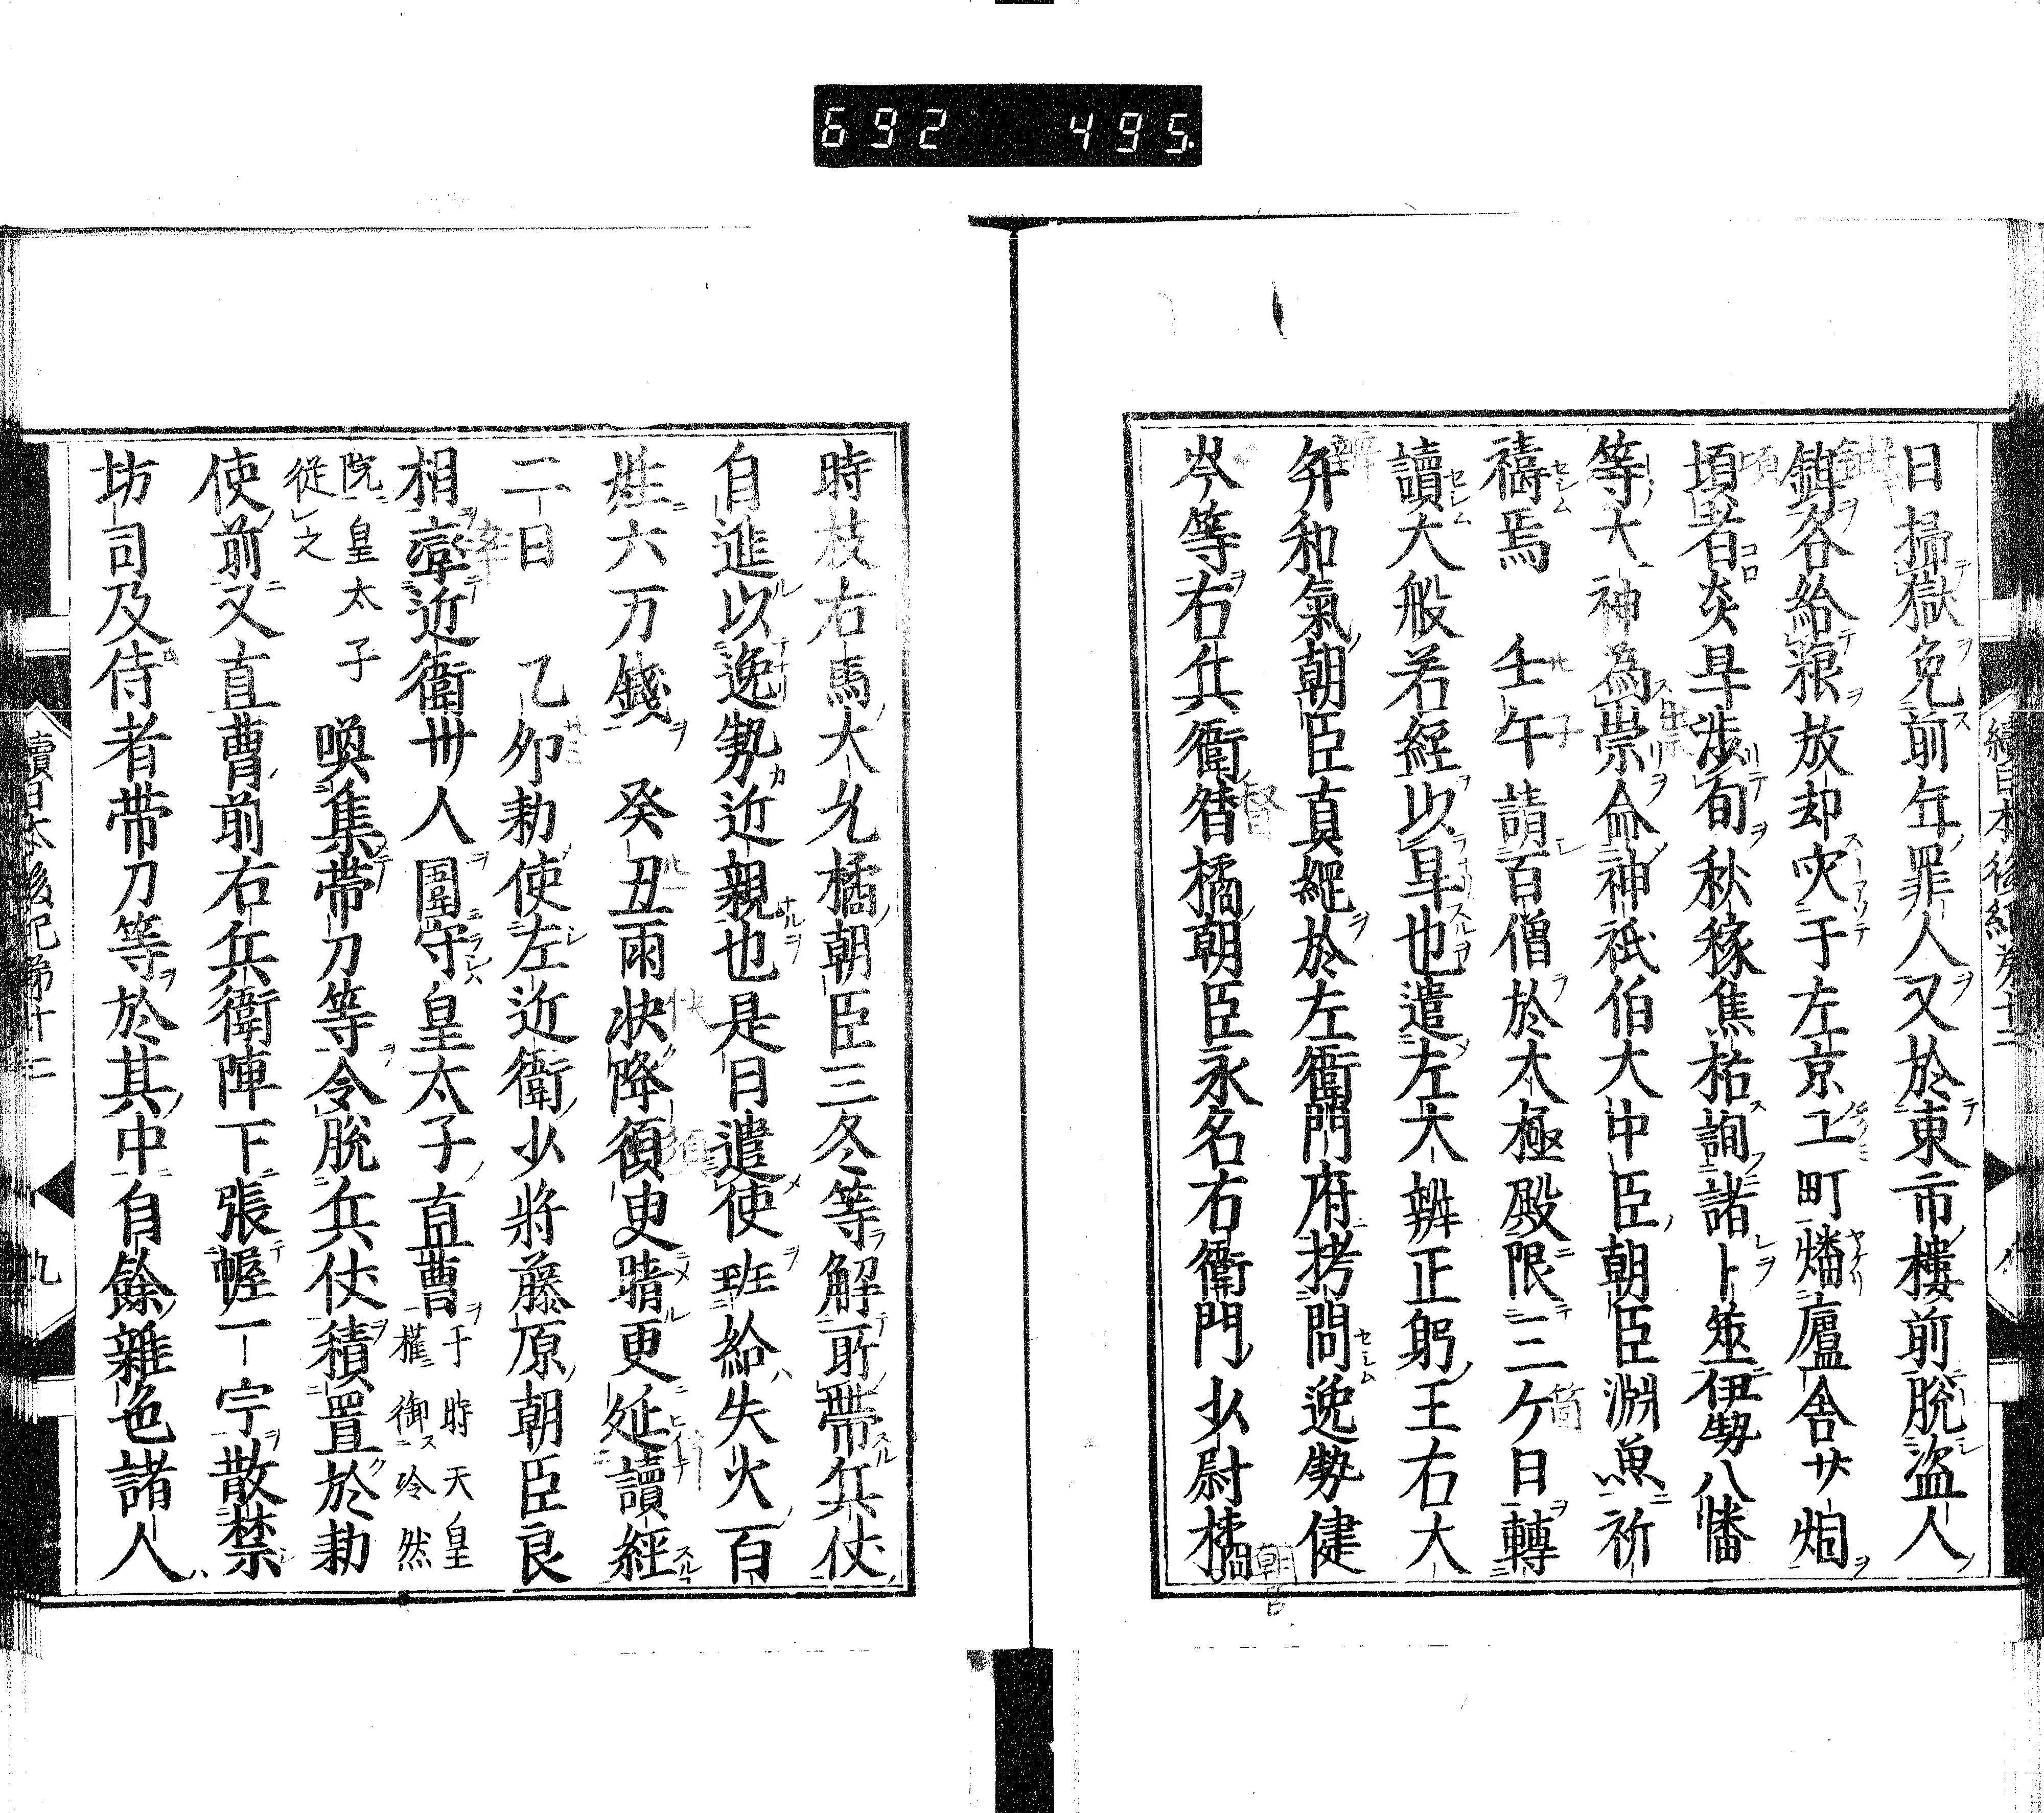 692 495
日掃獄免前年罪人又於東市樓前脫盗人
鉗各給粮放却灾于左京工町燔廬舎廿烟
頃者炎旱渉旬秋稼焦枯詢諸卜筮伊勢八幡
等大神為祟命神祇伯大中臣朝臣淵魚祈
禱焉　壬午請百僧於太極殿限三ケ日轉
讀大般若経以旱也遣左大辨正躬王右大
弁和氣朝臣真綱於左衛門府拷問逸勢健
岑等右兵衛督橘朝臣永名右衛門少尉橘
時枝右馬大允橘朝臣三冬等解所帶兵仗
自進以逸勢近親也是日遣使班給失火百
姓六万錢　癸丑雨快降須臾晴更延讀經
二日　乙夘勅使左近衛少將藤原朝臣良
相率近衛卅人圍守皇太子直曹于時天皇
權御冷然
院皇太子
従之
喚集帯刀等令脫兵仗積置於勅
使前又直曹前右兵衛陣下張幄一宇散禁
坊司及侍者帯刀等於其中自餘雜色諸人
續日本後紀第十二
九